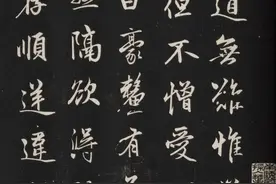 道無難惟
但不憎愛
豪釐有
隔欲得
存順逆違